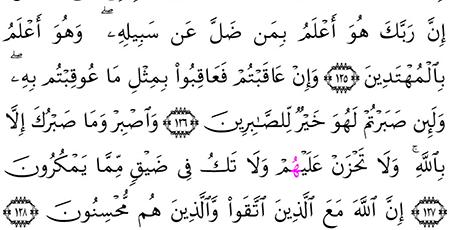 إِنَّ رَبَّكَ هُوَ أَعْلَمُ بِمَن ضَلَّ عَن سَبِيلِهِۦ ۖ وَهُوَ أَعْلَمُ
بِٱلْمُهْتَدِينَ ١٢٥ وَإِنْ عَاقَبْتُمْ فَعَاقِبُوا۟ بِمِثْلِ مَا عُوقِبْتُم بِهِۦ ۖ
وَلَئِن صَبَرْتُمْ لَهُوَ خَيْرٌ لِّلصَّٰبِرِينَ ١٢٦ وَٱصْبِرْ وَمَا صَبْرُكَ إِلَّا
بِٱللَّهِ ۚ وَلَا تَحْزَنْ عَلَيْهُمْ وَلَا تَكُ فِى ضَيْقٍ مِّمَّا يَمْكُرُونَ
١٢٧ إِنَّ ٱللَّهَ مَعَ ٱلَّذِينَ ٱتَّقَوا۟ وَّٱلَّذِينَ هُم مُّحْسِنُونَ ١٢٨